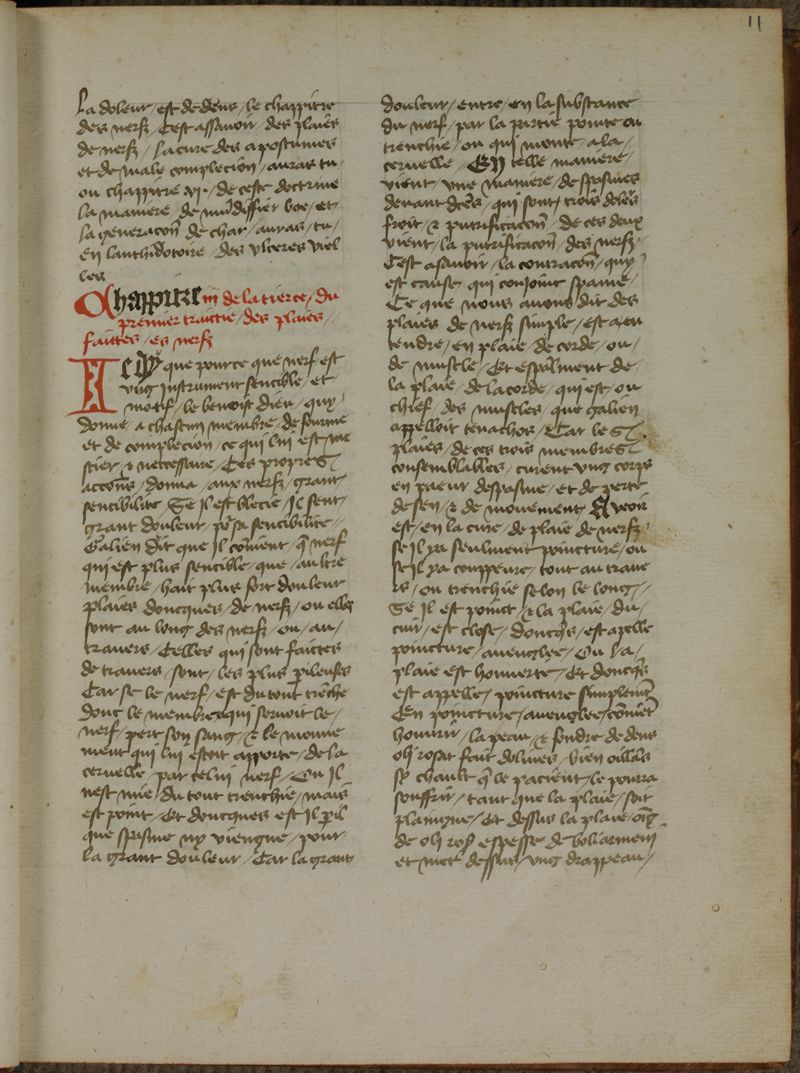 11
La doleur / est dedens / le chappitre
des nerfz / Cest assavoir / des plaies
de nerfz / la cure des apostumes
et de male complecion / auras tu
ou chappitre vi. / de ceste doctrine
la maniere / de mundiffier boe / et
la generacon de char / auras / tu /
En lanthidotoire / des ulceres viel
les
Chappitre iii de la tierce / du
premier traictie / des plaies /
faictes / es nerfz
Icy que pource que nerf est
ung instrument sencible / et
motif / le benoist dieu / quy
donne / a chascun membre / de fourme
et de complecion / ce qui lui est me
stier / & neccessaire / Ces propres
accons / donna / aux nerfz / grant
sencibilite / Se il est blecie / Il sent
grant douleur / po sa sencibilite /
Galien dit que Il coment / q nerf
qui est plus sencible / que / aultre
membre / hait plus fort douleur
plaies doncques / de nerfz / ou elles
sont au long des nerfz / ou / au /
travers / Celles qui sont faictes
de travers / sont / les plus pileuses
Car se le nerf / est du tout trenche
donc le membre qui servoit le /
nerf / pert son sang / & le mouve
ment qui lui estoit apporte / de la
cervelle / par celui nerf / Ou Il
nest mie / du tout trenchie / mais
est point / Et doncques est Il pil
que spasme ny viengne / pour
la grant douleur / Car la grant
douleur / entre / en la substance
du nerf / par la partie pointe ou
trenchie / ou qui monte / a la /
cervelle / En telle maniere
vient / une maniere / de spasmes
devant dces / qui sont / trois doleurs
froit / & putrificacon / de ces deux
vient / la putrificacon / des nerfz /
Cest asavoir / la contracon / quy
est cause / qui conjoint spame /
Ce que nous avons dit des
plaies de nerfz simple / est a en
tendre / en plaie / de corde / ou /
de muscle / Et espalment de
la plaie / de la corde / qui est / ou
chief / des muscles / que galien
appelloit tenachos / Car les
plaies / de ces trois membres
consemblables / curent ung corps
en paeur despasme / et de perte
de sen / & de mouvement / A veoir
est / en la cure / de plaie de nerfz
se il ya seulment poincture / ou
se il ya couppeure / tout au trave
rs / ou trenchie selon le long /
Se Il est point / & la plaie / du /
cuir / est close / doncqs / est apelle
poincture / aveuglee / Ou la /
plaie est houverte / Et doncqs
est appelle / poincture simplement
En poincture / aveuglee / coment
houvrir / la peau / & fondre dedens
oli rosat fait dolives / bien
sy chault q le pacient / le pourra
souffrir / tant que la plaie / soit
plaine / Et dessus la plaie / oing
de oli ros espesse de boliarmeni
et met dessus / ung drappeau /